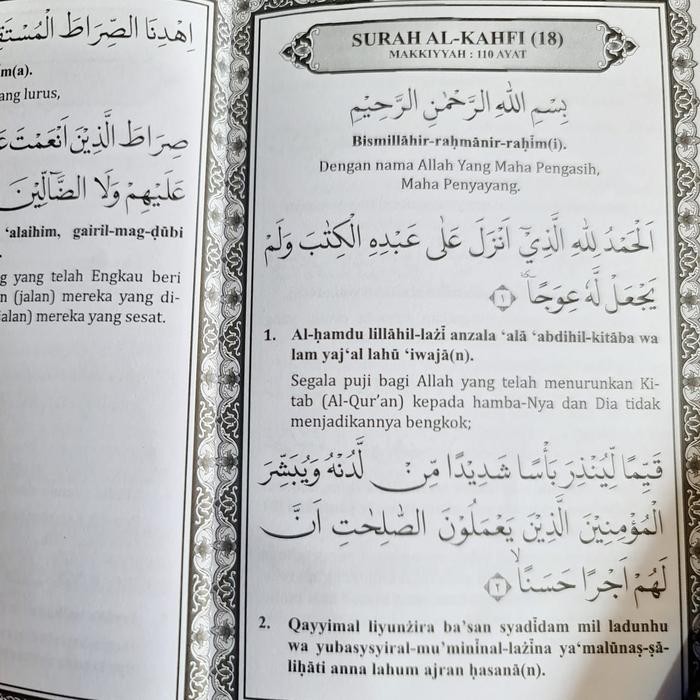 اِهْدِنَا الصِّرَاطَ
m(a).
ang lurus,
صِرَاطَ الَّذِيْنَ اَنْعَمْتَ
عَلَيْهِمْ وَلَا الضَّاۤلِّيْنَ
‘alaihim, gairil-mag-ḍūbi
.
g yang telah Engkau beri
n (jalan) mereka yang di-
alan) mereka yang sesat.
SURAH AL-KAHFI (18)
MAKKIYYAH : 110 AYAT
بِسْمِ اللّٰهِ الرَّحْمٰنِ الرَّحِيْمِ
Bismillāhir-raḥmānir-raḥīm(i).
Dengan nama Allah Yang Maha Pengasih,
Maha Penyayang.
اَلْحَمْدُ لِلّٰهِ الَّذِيْٓ اَنْزَلَ عَلٰى عَبْدِهِ الْكِتٰبَ وَلَمْ
يَجْعَلْ لَّهٗ عِوَجًاۜ ١
1. Al-ḥamdu lillāhil-lażī anzala ‘alā ‘abdihil-kitāba wa
lam yaj‘al lahū ‘iwajā(n).
Segala puji bagi Allah yang telah menurunkan Ki-
tab (Al-Qur’an) kepada hamba-Nya dan Dia tidak
menjadikannya bengkok;
قَيِّمًا لِّيُنْذِرَ بَأْسًا شَدِيْدًا مِّنْ لَّدُنْهُ وَيُبَشِّرَ
الْمُؤْمِنِيْنَ الَّذِيْنَ يَعْمَلُوْنَ الصّٰلِحٰتِ اَنَّ
لَهُمْ اَجْرًا حَسَنًاۙ ٢
2. Qayyimal liyunżira ba’san syadīdam mil ladunhu
wa yubasysyiral-mu’minīnal-lażīna ya‘malūnaṣ-ṣā-
liḥāti anna lahum ajran ḥasanā(n).